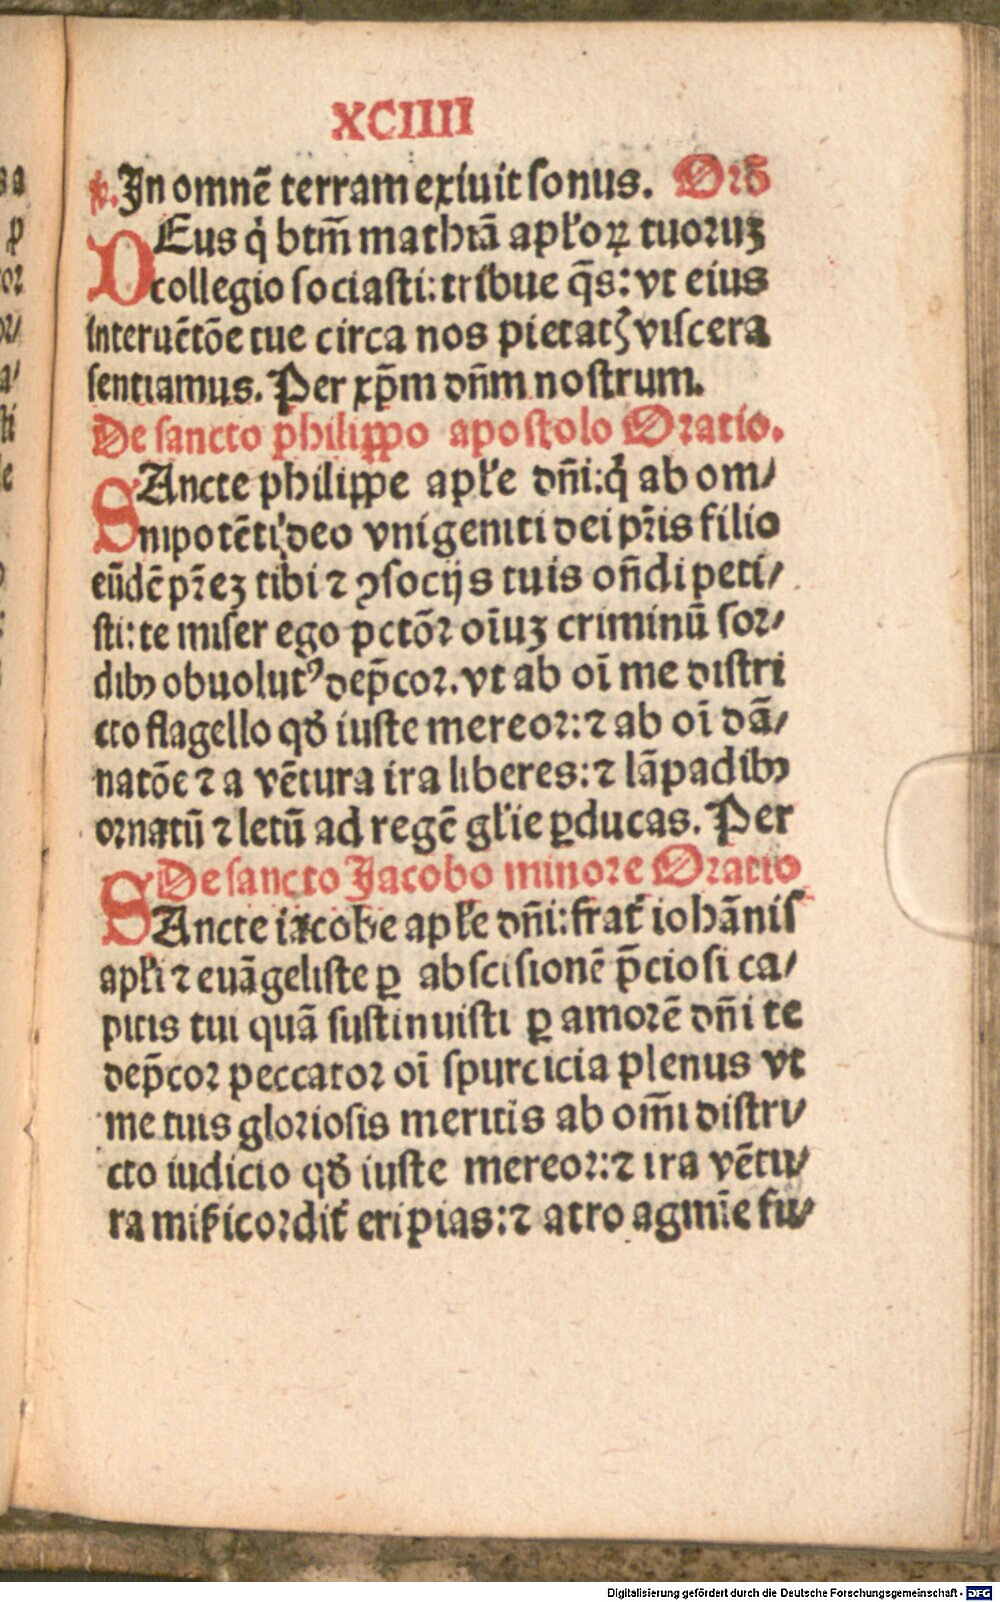 XCIIII
℟. In omnē terram exiuit sonus. Orō
DEus q̇ btm̄ mathiā apl'oꝝ tuoruꝫ
collegio sociasti: tribue q̄s: vt eius
interuētōe tue circa nos pietatꝭ viscera
sentiamus. Per xp̄m dn̄m nostrum.
De sancto philippo apostolo Oratio.
SAncte philippe apl'e dn̄i: q̇ ab om/
nipotēti deo vnigeniti dei pr̄is filio
eūdē pr̄eꝫ tibi ⁊ ꝯsocijs tuis on̄di peti/
sti: te miser ego pctōr oīuꝫ criminū sor/
dibꝰ obuolutꝰ dep̄cor. vt ab oī me distri
cto flagello qđ iuste mereor: ⁊ ab oī dā/
natōe ⁊ a vētura ira liberes: ⁊ lāpadibꝰ
ornatū ⁊ letū ad regē gl'ie ꝑducas. Per
De sancto Jacobo minore Oratio
SAncte iacobe apl'e dn̄i: frat̄ iohānis
apl'i ⁊ euāgeliste ꝑ abscisionē p̄ciosi ca/
pitis tui quā sustinuisti ꝑ amorē dn̄i te
dep̄cor peccator oī spurcicia plenus vt
me tuis gloriosis meritis ab om̄i distri/
cto iudicio qđ iuste mereor: ⁊ ira vētu/
ra mis̄icordit̄ eripias: ⁊ atro agmīe fu/
Digitalisierung gefördert durch die Deutsche Forschungsgemeinschaft - DFG